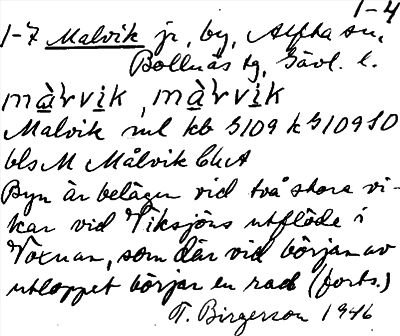 1-4
1-7 Malvik jr, by, Alfta sn,
Bollnäs tg, Gävl. l.
màrvik, màrvik
Malvik inl kb S109 k S109 SO
bls M Målvik
Byn är belägen vid två stora vi-
kar vid Viksjöns utflöde i
Voxnan, som där vid början av
utloppet börjar en rad (forts.)
T. Birgerson 1946